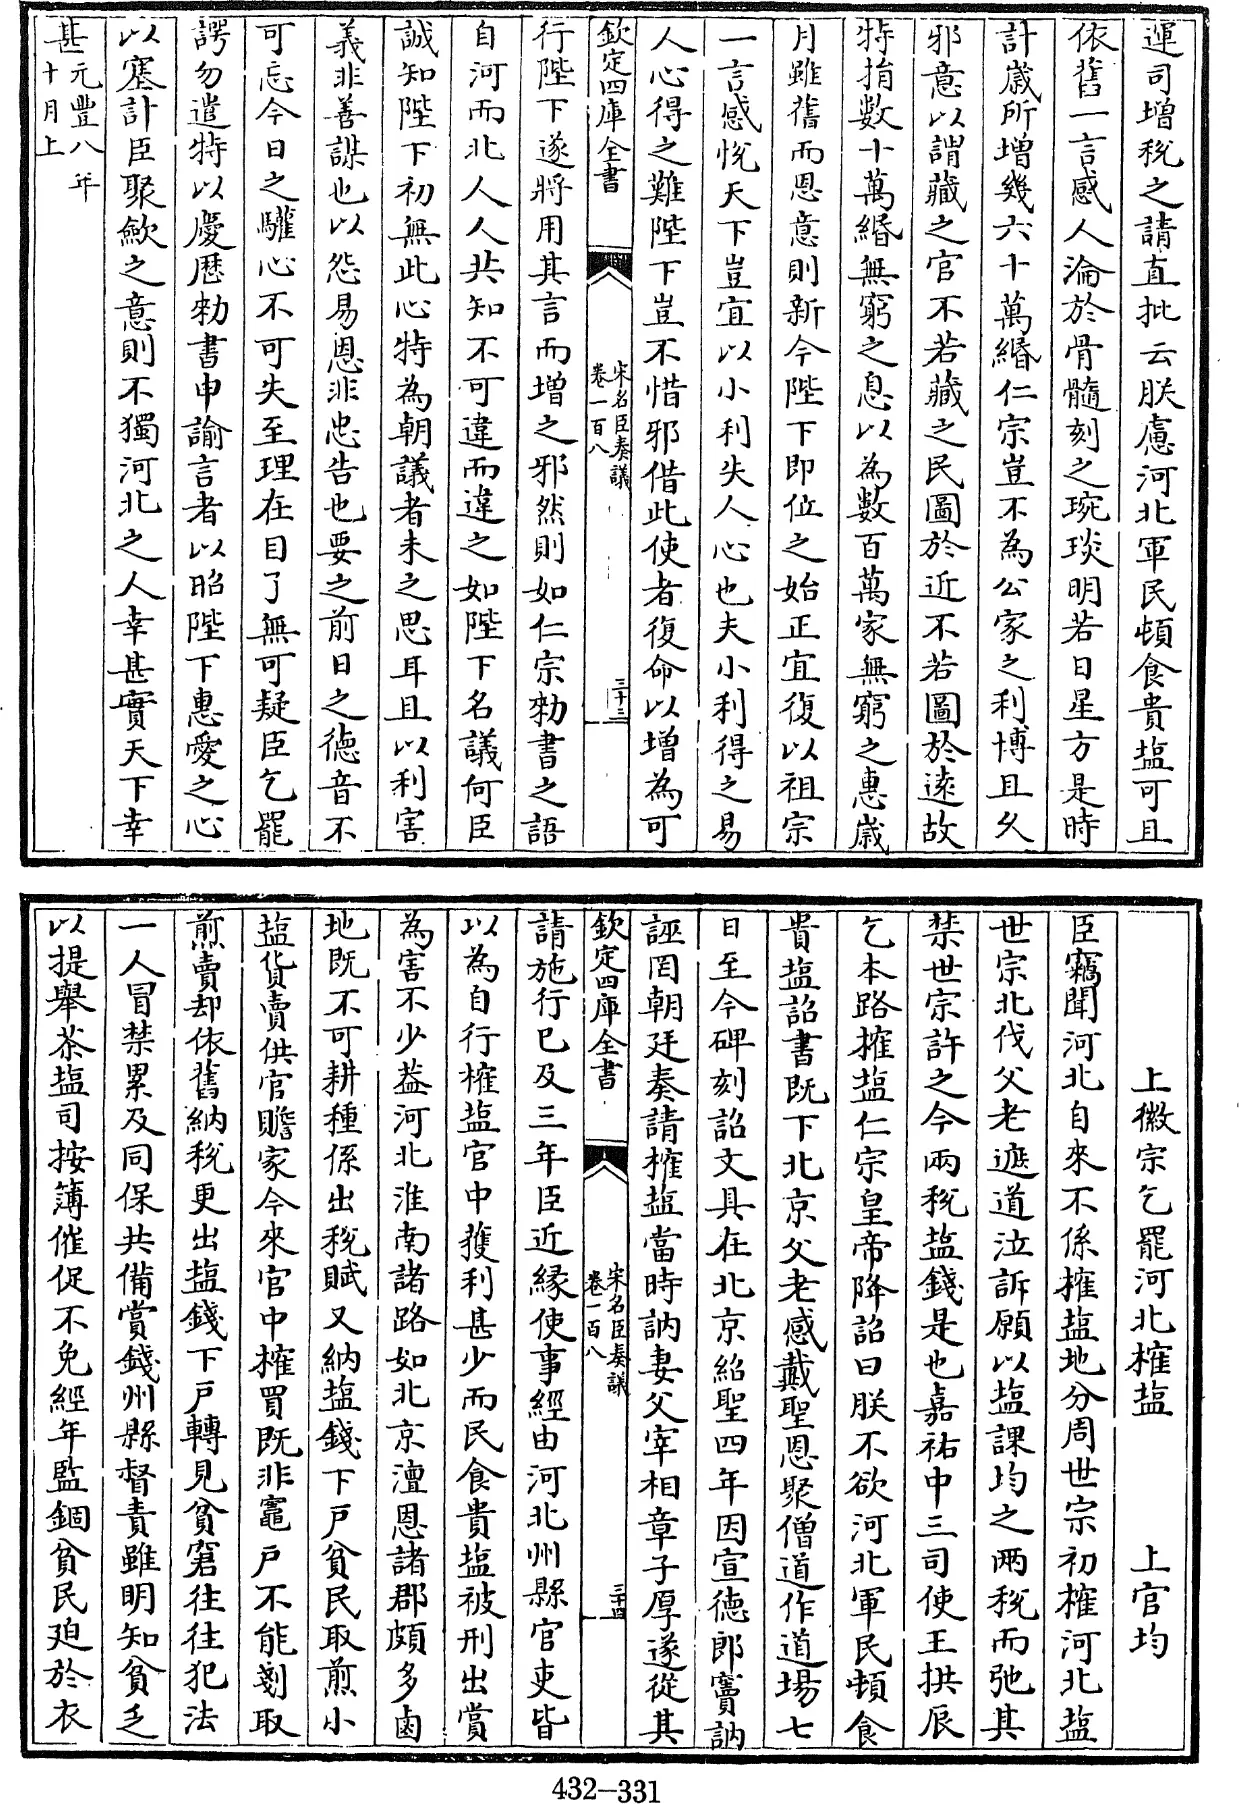 運司增稅之請直批云朕慮河北軍民頓食貴塩可且
依舊一言感人淪於骨髓刻之琬琰明若日星方是時
計歲所增幾六十萬緡仁宗豈不為公家之利博且久
邪意以謂藏之官不若藏之民圖於近不若圖於逺故
特捐數十萬緡無窮之息以為數百萬家無窮之惠歲
月雖舊而恩意則新今陛下即位之始正宜復以祖宗
一言感悅天下豈宜以小利失人心也夫小利得之易
人心得之難陛下豈不惜邪借此使者復命以增為可
欽定四庫全書
宋名臣奏議
卷一百八
三十三
行陛下遂將用其言而增之邪然則如仁宗勑書之語
自河而北人人共知不可違而違之如陛下名議何臣
誠知陛下初無此心特為朝議者未之思耳且以利害
義非善謀也以怨易恩非忠告也要之前日之德音不
可忘今日之驩心不可失至理在目了無可疑臣乞罷
諤勿遣特以慶厯勑書申諭言者以昭陛下惠愛之心
以塞計臣聚歛之意則不獨河北之人幸甚實天下幸
甚元豐八年
十月上
上徽宗乞罷河北榷塩 上官均
臣竊聞河北自來不係榷塩地分周世宗初榷河北塩
世宗北伐父老遮道泣訴願以塩課均之兩稅而弛其
禁世宗許之今兩稅塩錢是也嘉祐中三司使王拱辰
乞本路榷塩仁宗皇帝降詔曰朕不欲河北軍民頓食
貴塩詔書既下北京父老感戴聖恩聚僧道作道場七
日至今碑刻詔文具在北京紹聖四年因宣德郎竇訥
誣罔朝廷奏請榷塩當時訥妻父宰相章子厚遂從其
欽定四庫全書
宋名臣奏議
卷一百八
三十四
請施行已及三年臣近緣使事經由河北州縣官吏皆
以為自行榷塩官中獲利甚少而民食貴塩被刑出賞
為害不少葢河北淮南諸路如北京澶恩諸郡頗多鹵
地既不可耕種係出稅賦又納塩錢下戶貧民取煎小
塩貨賣供官贍家今來官中榷買既非竈戶不能剗取
煎賣却依舊納稅更出塩錢下戶轉見貧窘往往犯法
一人冒禁累及同保共備賞錢州縣督責雖明知貧乏
以提舉茶塩司按簿催促不免經年監錮貧民廹於衣
432-331